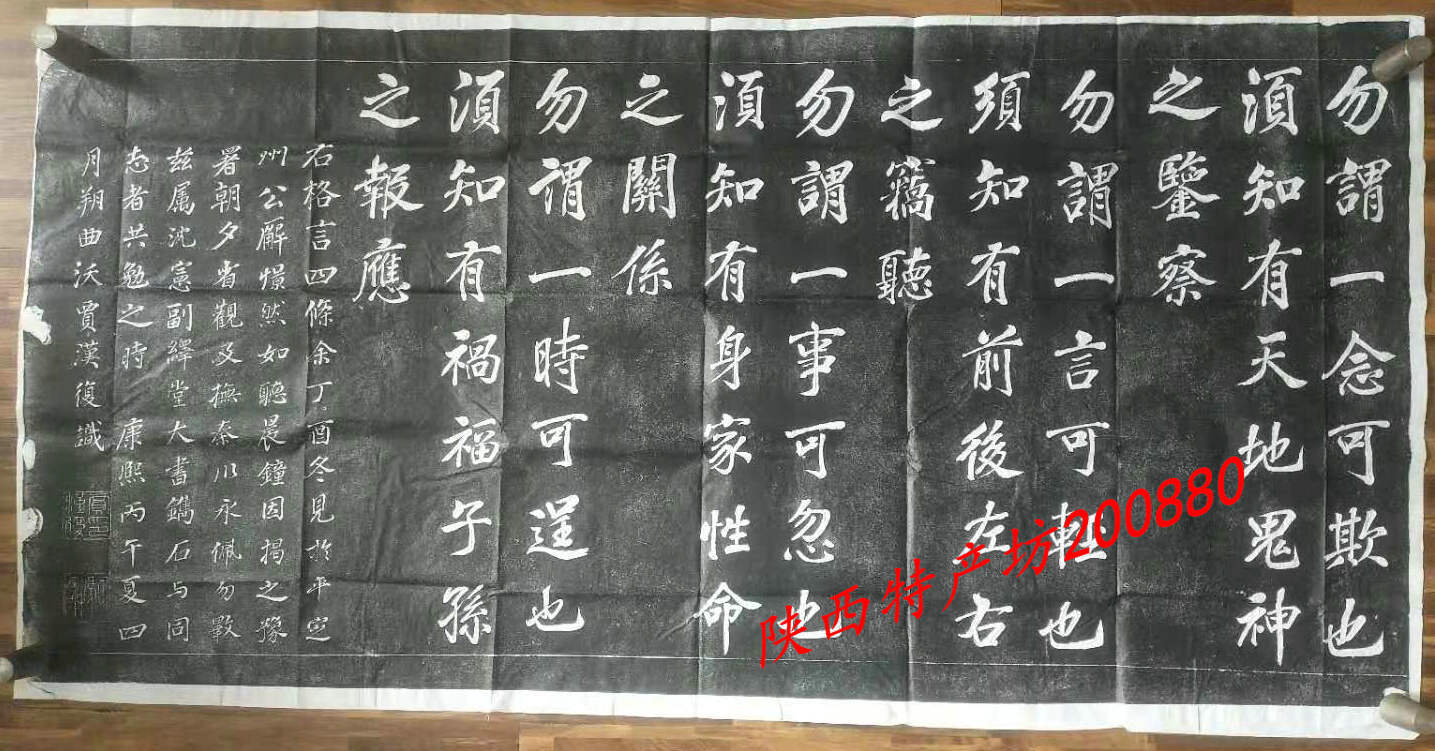 勿謂一念可欺也
須知有天地鬼神
之鑒察
勿謂一言可輕也
須知有前後左右
之竊聽
勿謂一事可忽也
須知有身家性命
之關係
勿謂一時可逞也
須知有禍福子孫
之報應
右格言四條余丁酉冬見於平定
州公廨憬然如聽晨鐘因揭之豫
署朝夕省觀及撫秦川永佩勿斁
茲属沈憲副繹堂大書鐫石与同
志者共勉之時 康熙丙午夏四
月朔曲沃賈漢復識
陕西特产坊200880